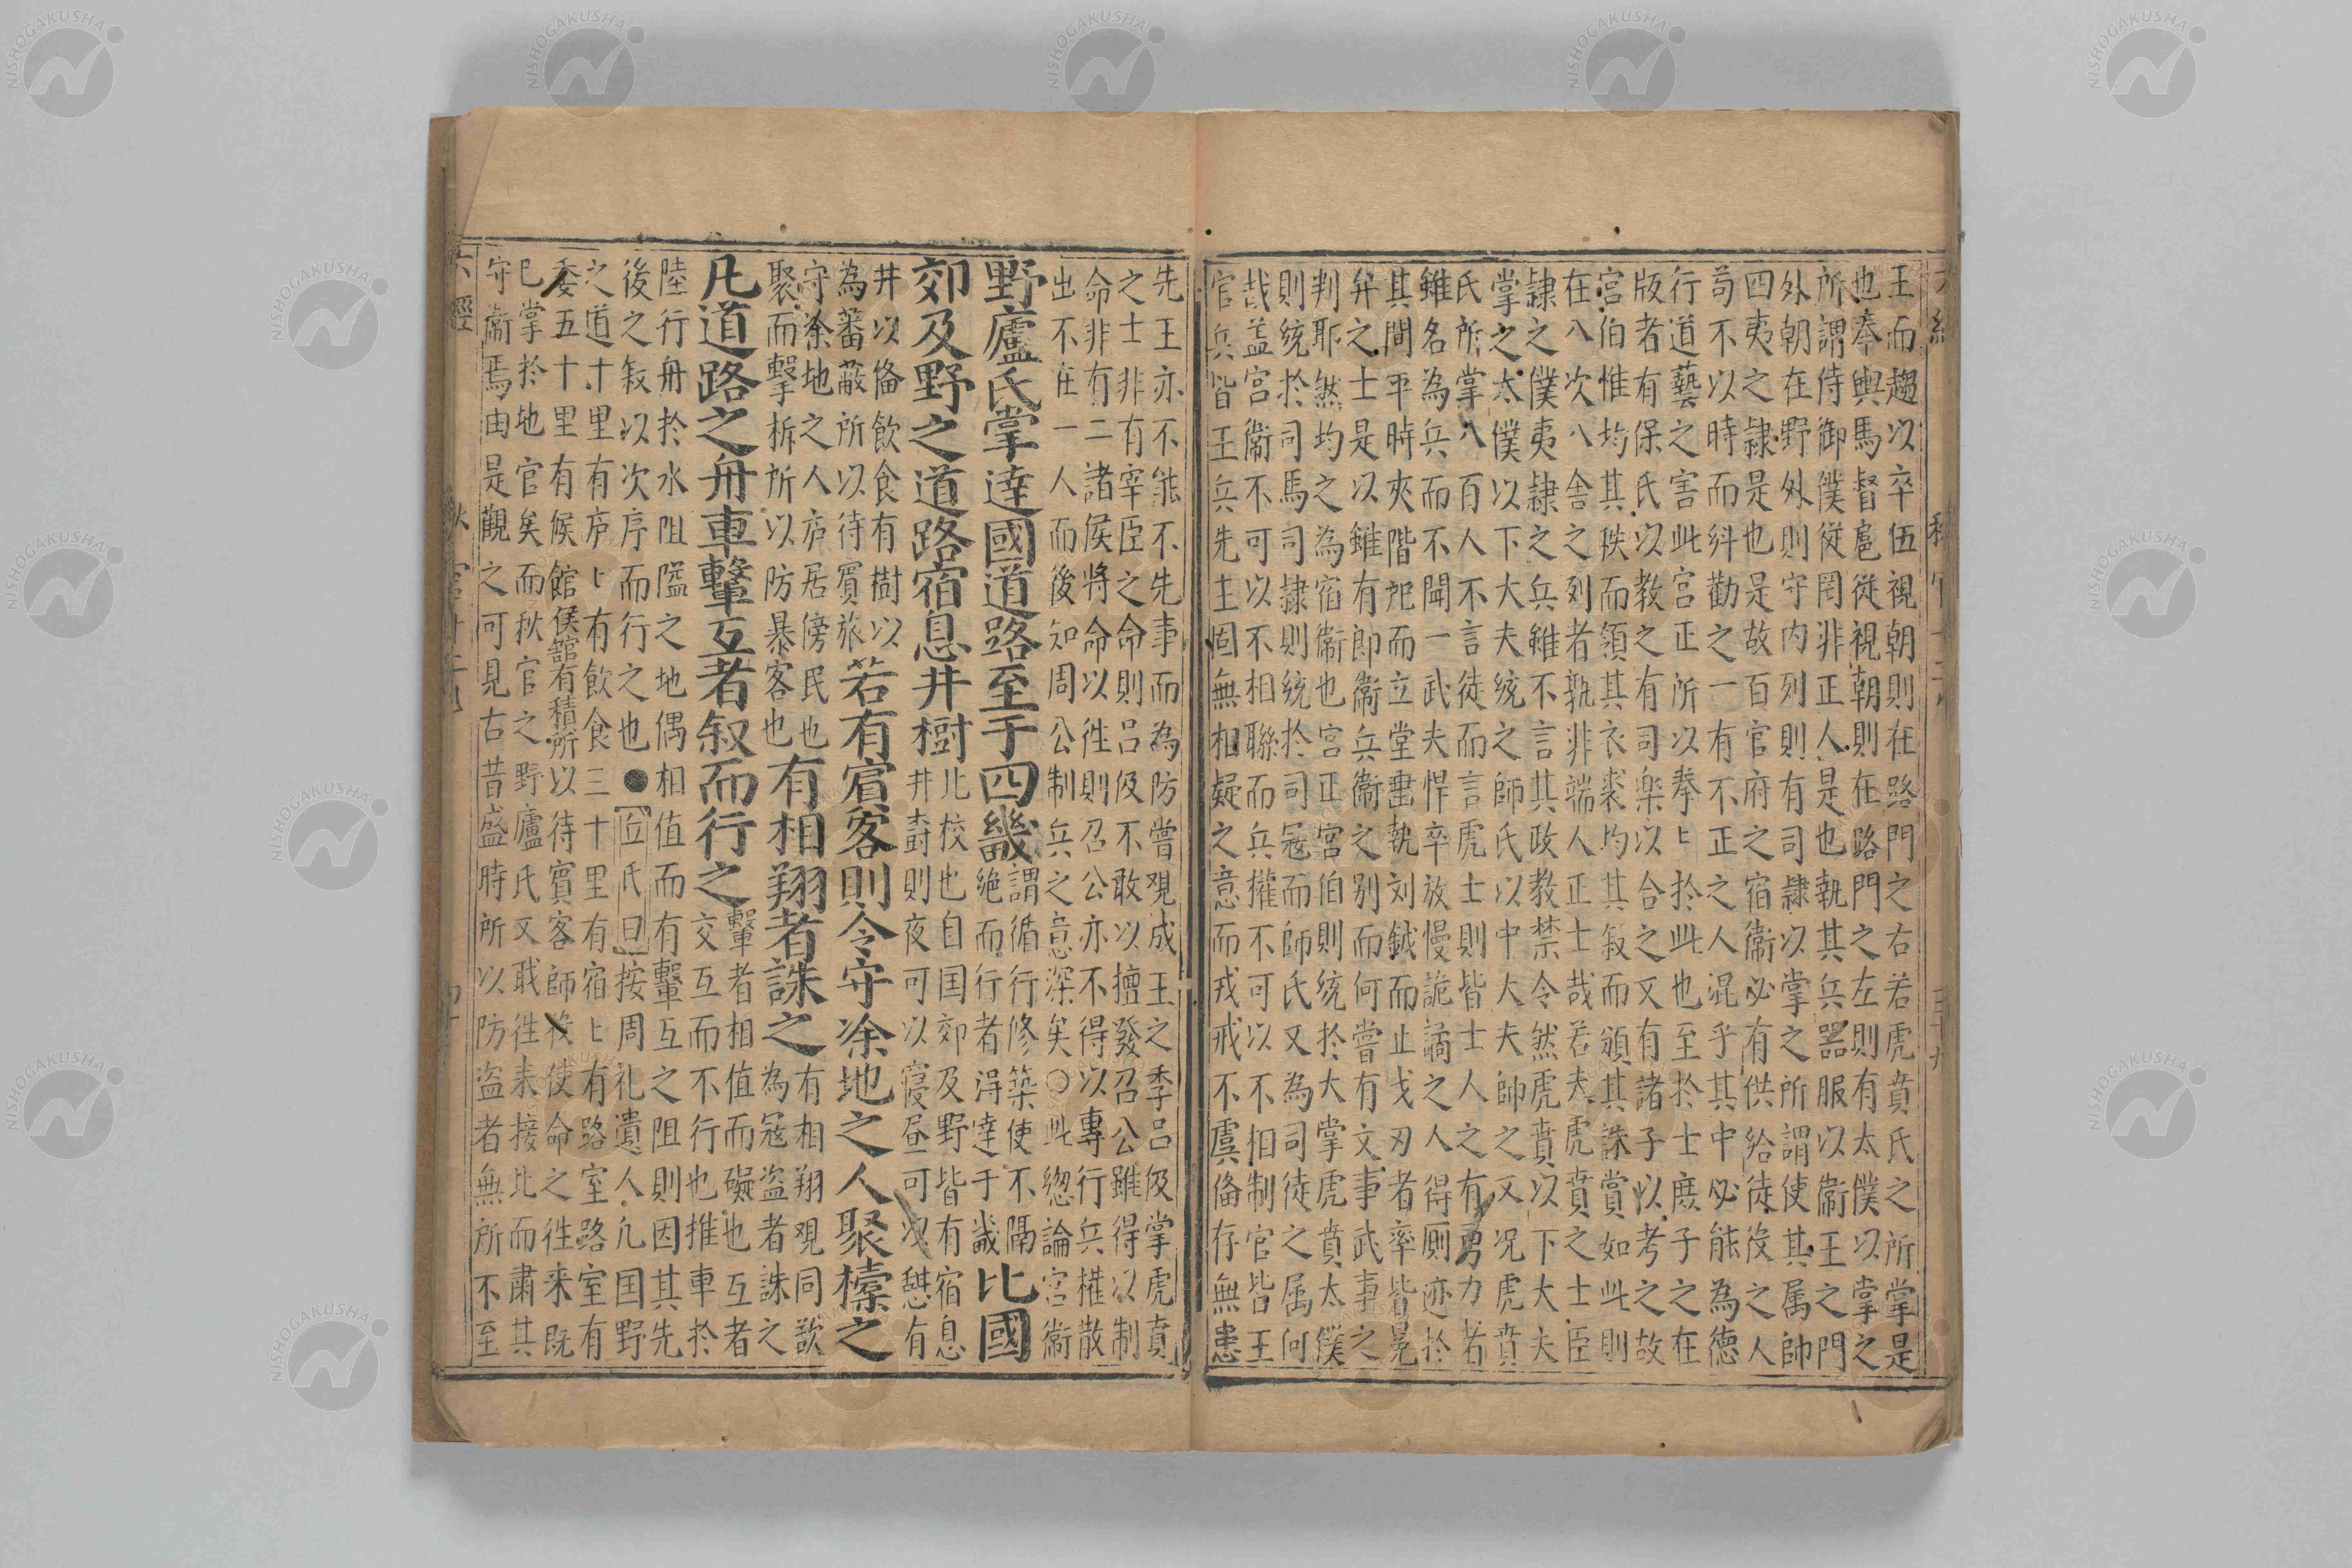 王而趨以卒伍視朝則在路門之右若虎賁氏之所掌是
也奉輿馬督扈從視朝則在路門之左則有太僕以掌之
所謂侍御僕從罔非正人是也執其兵器服以衞王之門
外朝在野外則守內列則有司隷以掌之所謂使其属帥
四夷之隷是也是故百官府之宿衞必有供給徒役之人
苟不以時而糾勸之一有不正之人混乎其中必能為德
行道藝之害此宮正所以拳〻於此也至於士庶子之在
版者有保氏以教之有司樂以合之又有諸子以考之故
宮伯惟均其秩而頒其衣裘均其叙而頒其誅賞如此則
在八次八舍之列者孰非端人正士哉若夫虎賁之士臣
隷之僕夷隷之兵雖不言其政教禁令然虎賁以下大夫
掌之太僕以下大夫統之師氏以中大夫帥之又况虎賁
氏所掌八百人不言徒而言虎士則皆士人之有勇力者
雖名為兵而不聞一武夫悍卒放慢詭譎之人得厠迹於
其間平時夾階戺而立堂垂執刘鉞而止戈刃者率皆冕
弁之士是以雖有郎衞兵衞之别而何嘗有文事武事之
判耶然均之為宿衞也宮正宮伯則統於大掌虎賁太僕
則統於司馬司隷則統於司冦而師氏又為司徒之属何
哉盖宮衞不可以不相聯而兵權不可以不相制官皆王
官兵皆王兵先王固無相疑之意而戎戒不虞俻存無患
先王亦不能不先事而為防嘗覌成王之季呂伋掌虎賁
之士非有宰臣之命則呂伋不敢以擅發召公雖得以制
命非有二諸侯將命以徃則召公亦不得以專行兵權散
出不在一人而後知周公制兵之意深矣○此緫論宮衞
野廬氏掌達國道路至于四畿謂循行修築使不隔絶而行者淂達于畿比國
郊及野之道路宿息井樹比校也自囯郊及野皆有宿息井樹則夜可以寝昼可以憇有
井以俻飲食有樹以為蕃蔽所以待賓旅若有賓客則令守涂地之人聚㯓之
守涂地之人庐居傍民也聚而擊柝所以防暴客也有相翔者誅之有相翔覌同欲為冦盗者誅之
凡道路之舟車轚互者叙而行之轚者相值而礙也互者交互而不行也推車於
陸行舟於水阻隘之地偶相值而有轚互之阻則因其先
後之叙以次序而行之也●丘氏曰按周礼遺人凢囯野
之道十里有庐〻有飲食三十里有宿〻有路室路室有
委五十里有候館候館有積所以待賓客師役使命之徃来既
已掌於地官矣而秋官之野廬氏又戢徃来接比而肅其
守衞焉由是觀之可見古昔盛時所以防盗者無所不至